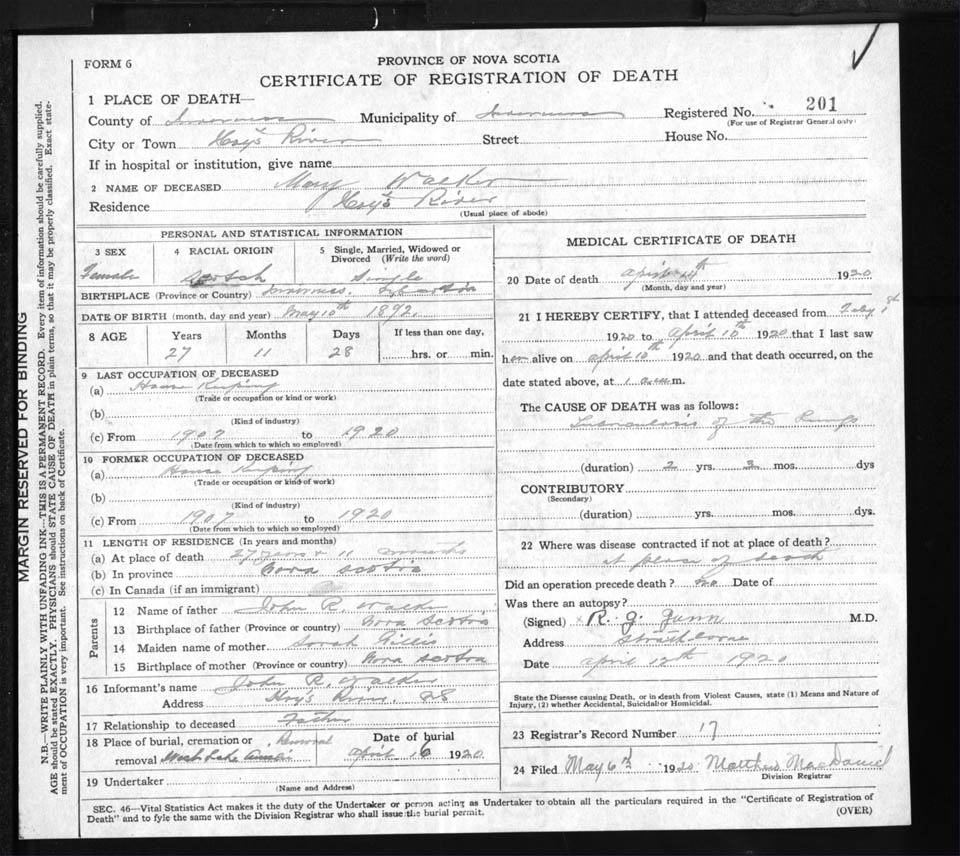 FORM 6
PROVINCE OF NOVA SCOTIA
CERTIFICATE OF REGISTRATION OF DEATH
1 PLACE OF DEATH—
County of Inverness Municipality of Inverness Registered No. 201
(For use of Registrar General only)
City or Town Hay's River Street House No.
If in hospital or institution, give name
2 NAME OF DECEASED Mary Walker
Residence Hay's River
(Usual place of abode)
PERSONAL AND STATISTICAL INFORMATION
3 SEX 4 RACIAL ORIGIN 5 Single, Married, Widowed or Divorced (Write the word)
Female Scotch Single
BIRTHPLACE (Province or Country) Inverness,
DATE OF BIRTH (month, day and year) May 10th 1892
8 AGE Years Months Days If less than one day,
27 11 28 hrs. or min.
9 LAST OCCUPATION OF DECEASED
(a) House Keeping
(Trade or occupation or kind or work)
(b)
(Kind of industry)
(c) From 1907 to 1920
(Date from which to which so employed)
10 FORMER OCCUPATION OF DECEASED
(a) House Keeping
(Trade or occupation or kind of work)
(b)
(Kind of industry)
(c) From 1907 to 1920
(Date from which to which so employed)
11 LENGTH OF RESIDENCE (In years and months)
(a) At place of death 27 years + 11 months
(b) In province Nova Scotia
(c) In Canada (if an immigrant)
Parents
12 Name of father John R. Walker
13 Birthplace of father (Province or country) Nova Scotia
14 Maiden name of mother Sarah Gillis
15 Birthplace of mother (Province or country) Nova Scotia
16 Informant's name John R. Walker
Address Hay's River, NS
17 Relationship to deceased Father
18 Place of burial, cremation or removal West Lake Ainslie
Date of burial
April 16 1920
19 Undertaker
(Name and Address)
MEDICAL CERTIFICATE OF DEATH
20 Date of death April 1920
(Month, day and year)
21 I HEREBY CERTIFY, that I attended deceased from Feby 1st
1920 to April 10th 1920 that I last saw
her alive on April 10th 1920 and that death occurred, on the
date stated above, at 1 a.m.
The CAUSE OF DEATH was as follows:
Tuberculosis of the Lungs
(duration) 2 yrs. 3 mos. dys
CONTRIBUTORY
(Secondary)
(duration) yrs. mos. dys.
22 Where was disease contracted if not at place of death?
at place of death
Did an operation precede death? No Date of
Was there an autopsy?
(Signed) R. J. Gunn M.D.
Address Strathlorne
Date April 12th 1920
State the Disease causing Death, or in death from Violent Causes, state (1) Means and Nature of
Injury, (2) whether Accidental, Suicidal or Homicidal.
23 Registrar's Record Number 17
24 Filed May 6th 1920 Matthew MacDaniel
Division Registrar
SEC. 46—Vital Statistics Act makes it the duty of the Undertaker or person acting as Undertaker to obtain all the particulars required in the "Certificate of Registration of
Death" and to fyle the same with the Division Registrar who shall issue the burial permit. (OVER)
MARGIN RESERVED FOR BINDING
N.B.—WRITE PLAINLY WITH UNFADING INK—THIS IS A PERMANENT RECORD. Every item of information should be carefully supplied.
AGE should be stated EXACTLY. PHYSICIANS should STATE CAUSE OF DEATH in plain terms, so that it may be properly classified. Exact state-
ment of OCCUPATION is very important. See instructions on back of Certificate.